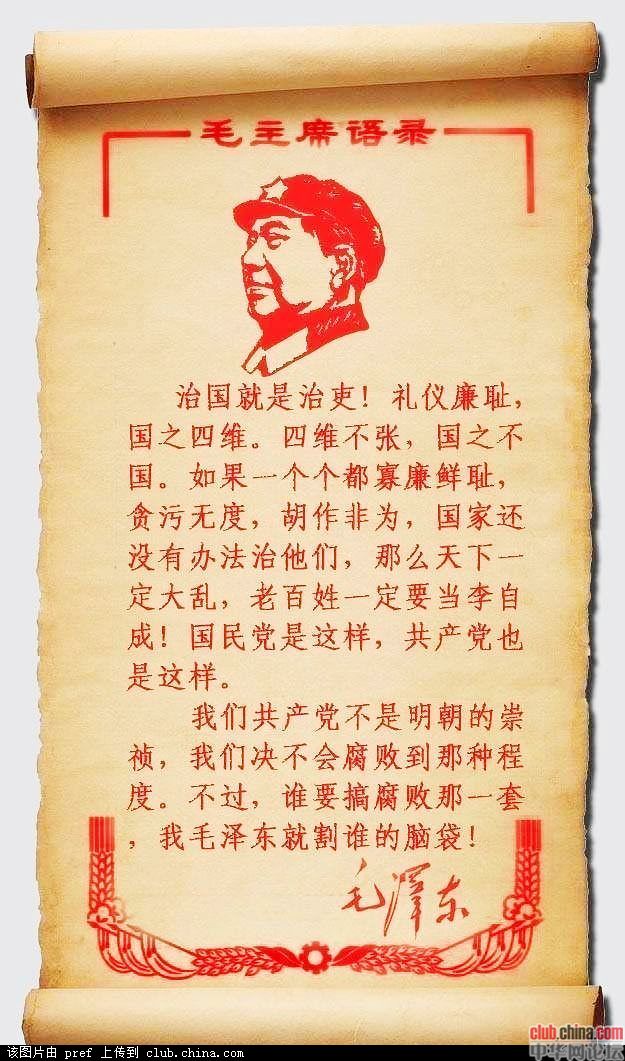 毛主席语录
治国就是治吏！礼仪廉耻，
国之四维。四维不张，国之不
国。如果一个个都寡廉鲜耻，
贪污无度，胡作非为，国家还
没有办法治他们，那么天下一
定大乱，老百姓一定要当李自
成！国民党是这样，共产党也
是这样。
我们共产党不是明朝的崇
祯，我们决不会腐败到那种程
度。不过，谁要搞腐败那一套
，我毛泽东就割谁的脑袋！
毛泽东
club.china.com
中华网论坛
该图片由 pref 上传到 club.china.com